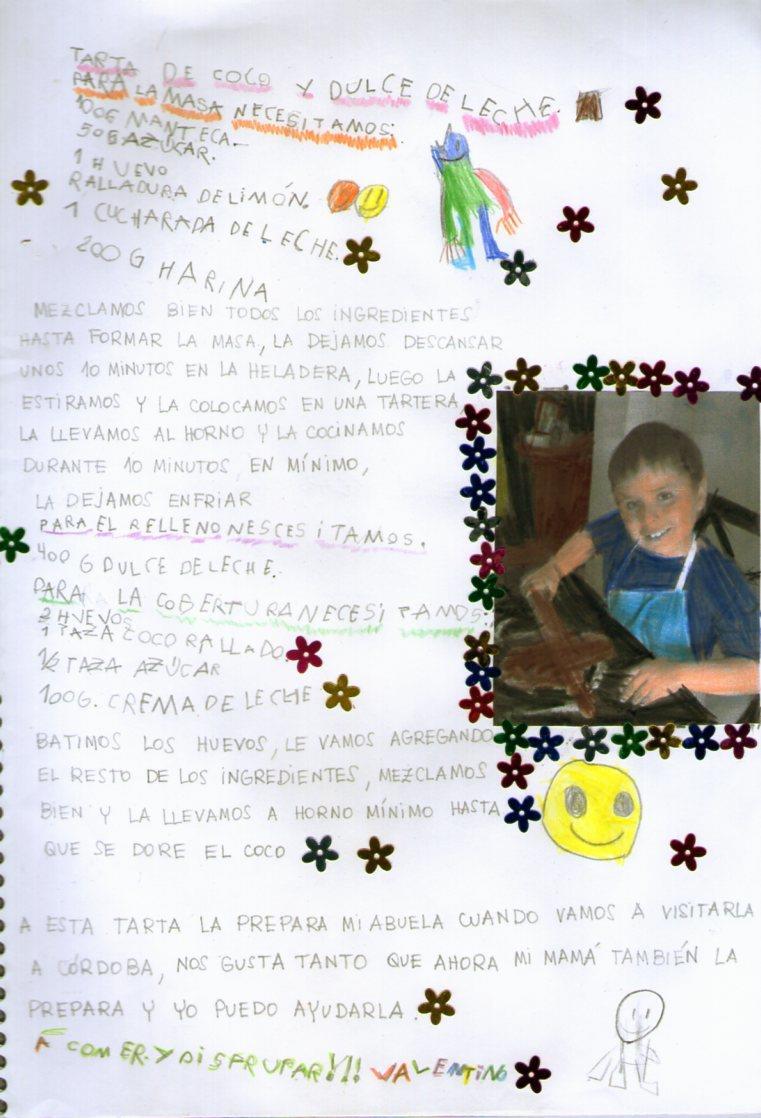 TARTA DE COCO Y DULCE DE LECHE.
PARA LA MASA NECESITAMOS:
100G MANTECA.
50G AZÚCAR.
1 HUEVO
RALLADURA DE LIMÓN.
1 CUCHARADA DE LECHE.
200 G HARINA
MEZCLAMOS BIEN TODOS LOS INGREDIENTES
HASTA FORMAR LA MASA, LA DEJAMOS DESCANSAR
UNOS 10 MINUTOS EN LA HELADERA, LUEGO LA
ESTIRAMOS Y LA COLOCAMOS EN UNA TARTERA
LA LLEVAMOS AL HORNO Y LA COCINAMOS
DURANTE 10 MINUTOS, EN MÍNIMO,
LA DEJAMOS ENFRIAR
PARA EL RELLENO NESCESITAMOS.
400 G DULCE DE LECHE.
PARA LA COBERTURA NECESITAMOS:
2 HUEVOS
1 TAZA COCO RALLADO.
1/2 TAZA AZÚCAR
100G. CREMA DE LECHE
BATIMOS LOS HUEVOS, LE VAMOS AGREGANDO
EL RESTO DE LOS INGREDIENTES, MEZCLAMOS
BIEN Y LA LLEVAMOS A HORNO MÍNIMO HASTA
QUE SE DORE EL COCO
A ESTA TARTA LA PREPARA MI ABUELA CUANDO VAMOS A VISITARLA
A CÓRDOBA, NOS GUSTA TANTO QUE AHORA MI MAMÁ TAMBIÉN LA
PREPARA Y YO PUEDO AYUDARLA.
A COMER Y DISFRUPAR!!! VALENTINO